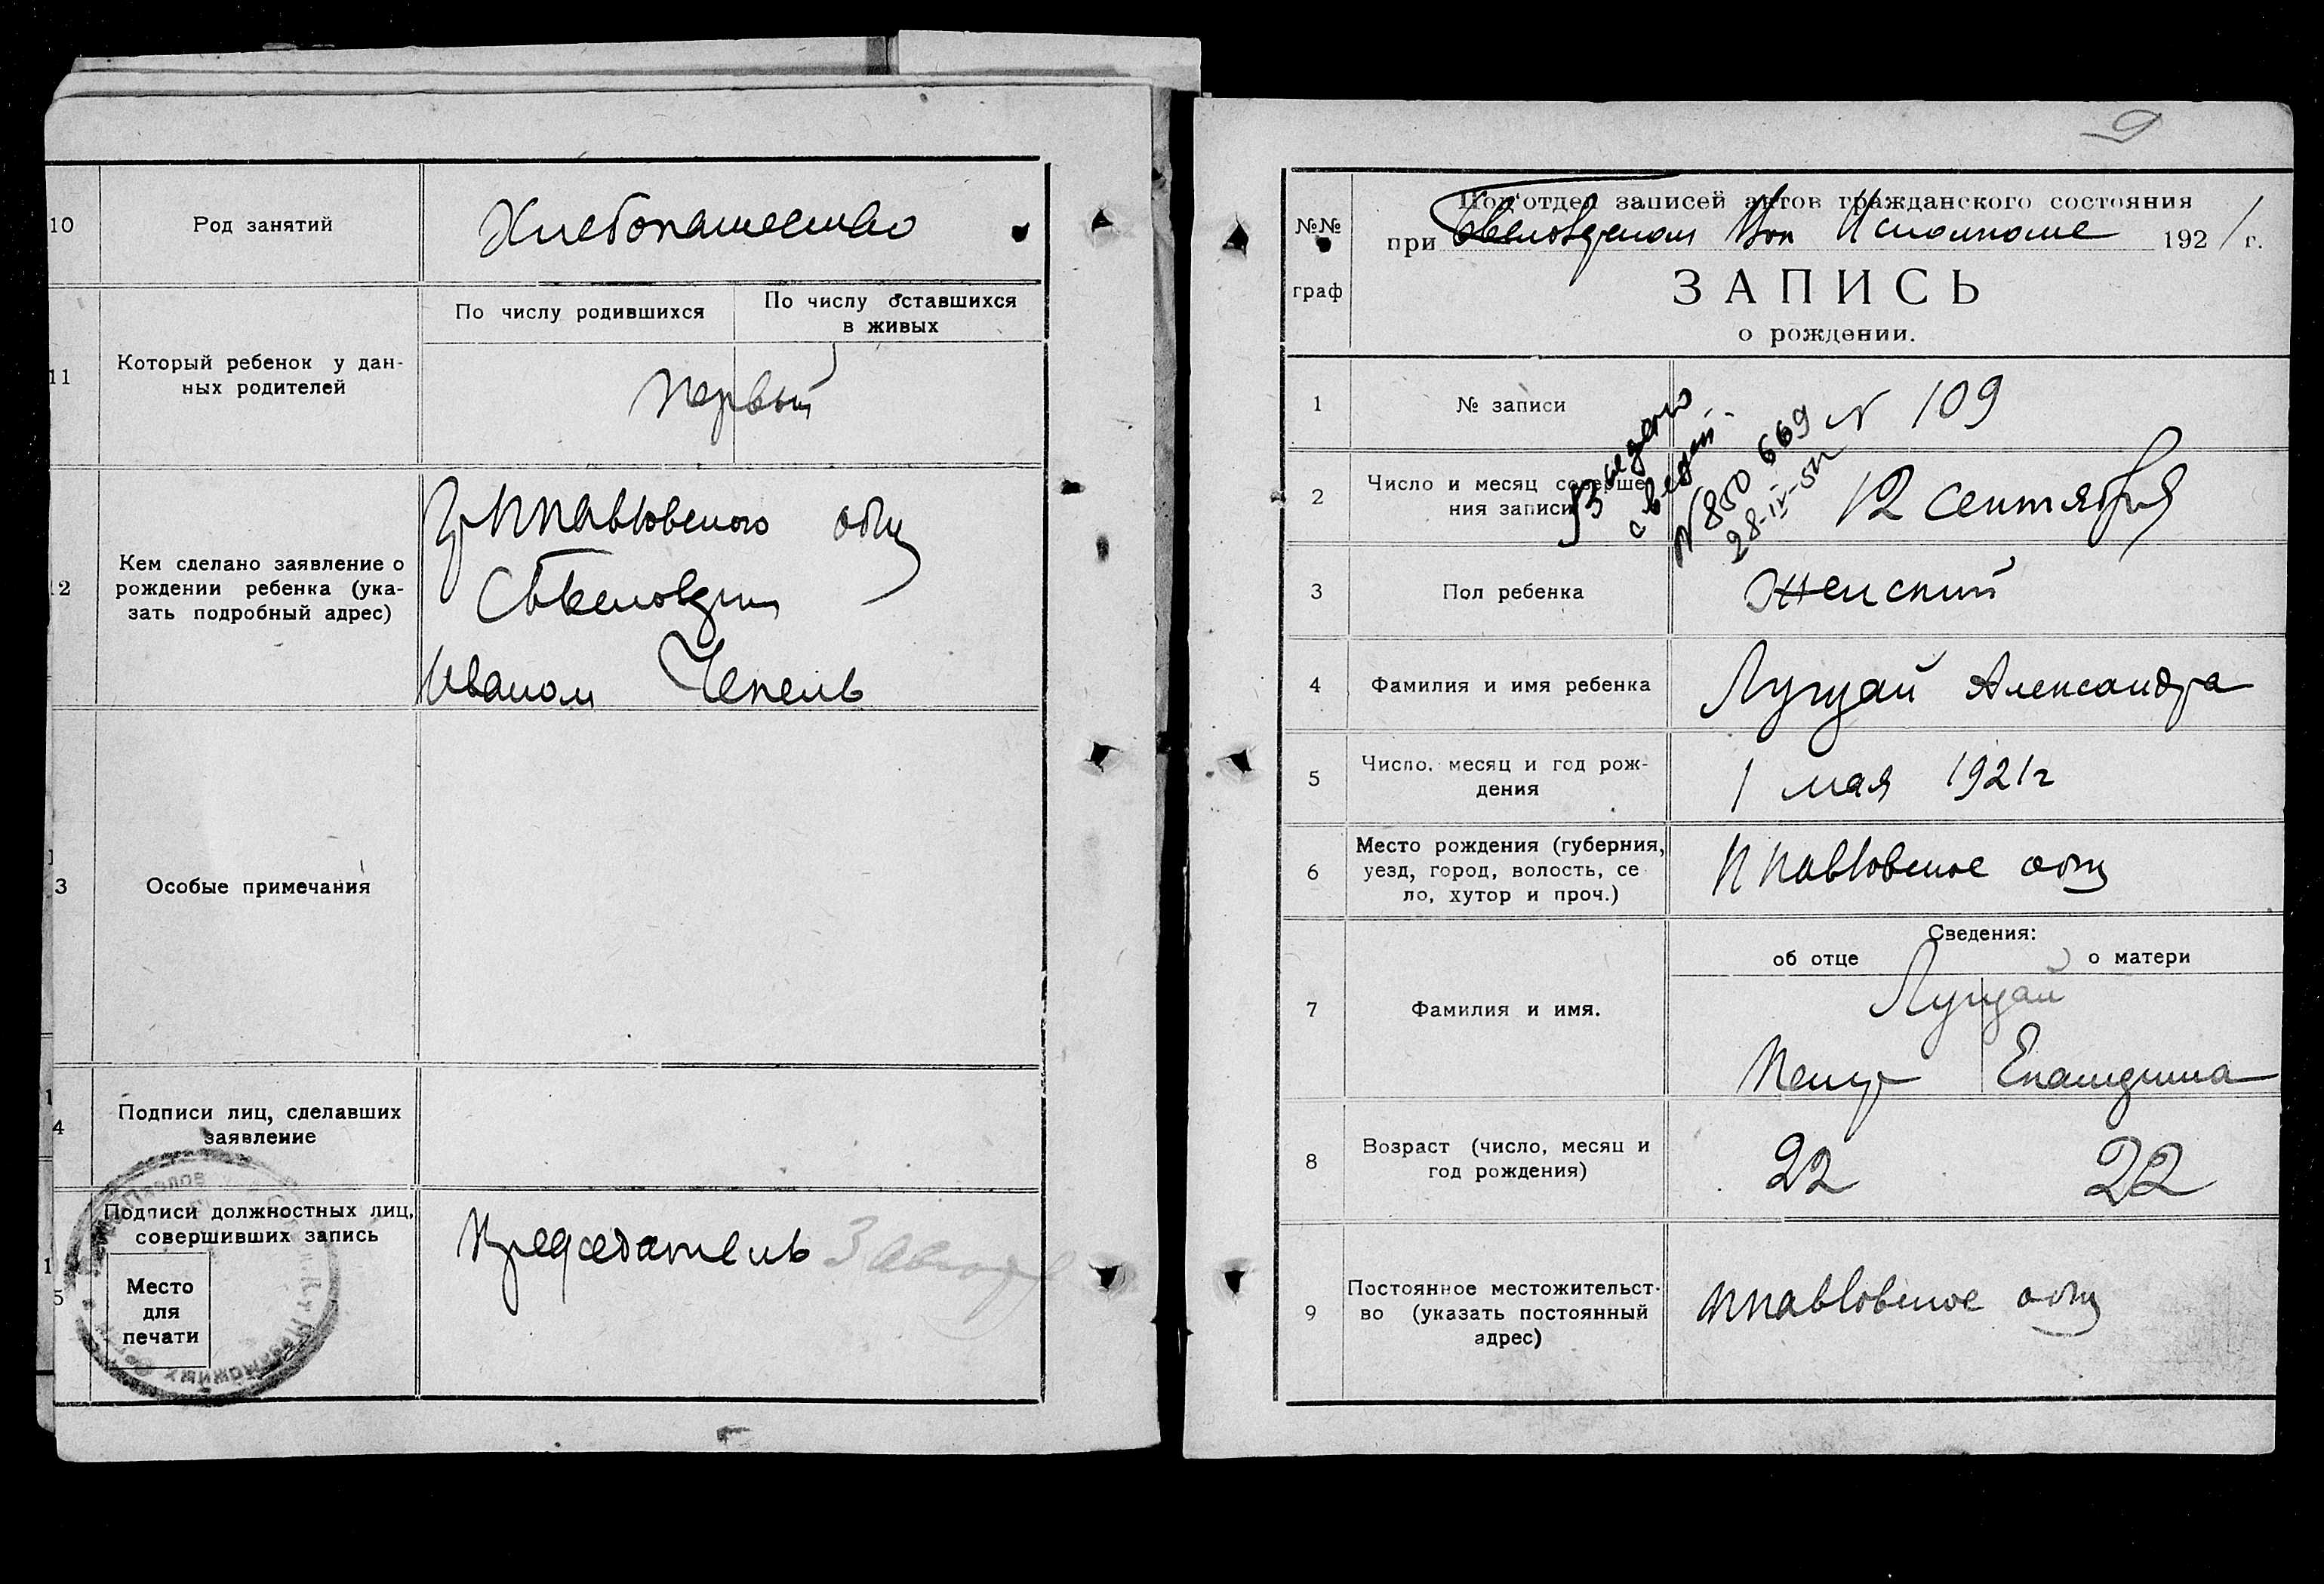 10
Род занятий
Хлебопашество
11
Который ребенок у дан-
ных родителей
По числу родившихся
По числу оставшихся
в живых
первый
12
Кем сделано заявление о
рождении ребенка (ука-
зать подробный адрес)
общ
Иваном Чепель
13
Особые примечания
14
Подписи лиц, сделавших
заявление
15
Подписи должностных лиц,
совершивших запись
Место
для
печати
Председатель
9
№№
граф
Под'отдел записей актов гражданского состояния
при Вол Исполкоме 1921 г.
ЗАПИСЬ
о рождении.
1
№ записи
N 109
Выдано
свидет.
N 850669
28-IV-51
2
Число и месяц соверше-
ния записи
12 сентября
3
Пол ребенка
Женский
4
Фамилия и имя ребенка
Лугцай Александра
5
Число, месяц и год рож-
дения
1 мая 1921г
6
Место рождения (губерния,
уезд, город, волость, се
ло, хутор и проч.)
Ппавловское общ
Сведения:
об отце
о матери
7
Фамилия и имя.
Лугцай
Петр
Екатерина
8
Возраст (число, месяц и
год рождения)
22
22
9
Постоянное местожительст-
во (указать постоянный
адрес)
Ппавловское общ